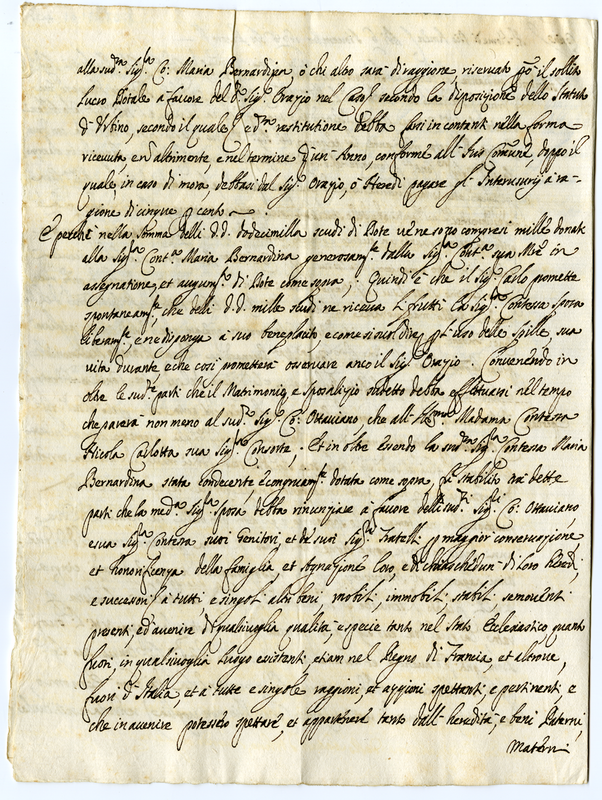 alla sud.ª Sig.ª Co: Maria Bernardina, ò chi altro sarà di raggione, riservato però il solito
Lucro Dotale à favore del d.º Sig. Orazio nel Caso, secondo la dispositione dello Statuto
d'Urbino, secondo il quale, e d.ª restitutione debba farsi in contanti nella forma
ricevuta, e nõ altrimente, e nel termine d'un Anno, conforme all'Ius Comune, doppo il
quale, in caso di mora, debbasi dal Sig. Orazio, ò Heredi pagare gl'Interusurij à ra-
gione di cinque p cento.
E perche nella somma delli d.d. dodecimilla scudi di Dote ve ne sono compresi mille donati
alla Sig.ra Cont.ª Maria Bernardina generosam.te dalla Sig.ra Cont.ª sua M.re in
assegnatione, et augum.to di Dote come sopra; Quindi è che il Sig. Carlo promette
spontaneam.te che delli d.d. mille scudi ne riceva i frutti la Sig.ra Contessa Sposa
liberam.te, e ne disponga à suo beneplacito, e come si suol dire p l'uso delle Spille, sua
vita durante, e che così prometterà osservare anco il Sig. Orazio. Convenendo in
oltre le sud.e parti che il Matrimonio, e Sposalizio sudetto debba effettuarsi nel tempo
che parerà non meno al sud.º Sig. Co: Ottaviano, che all' Ill.ma Madama Contessa
Nicola Carlotta sua Sig.ra Consorte; Et in oltre essendo la sud.ª Sig.ra Contessa Maria
Bernardina stata condecente, e congruam.te dotata come sopra, fù stabilito trà dette
parti che la med.ª Sig.ra Sposa debba rinunziare à favore delli sud.ti Sig.ri Co: Ottaviano,
e sua Sig.ra Contessa suoi Genitori, et de suoi Sig.ri Fratelli p maggior conservazione,
et honorificenza della famiglia et Agnazione loro, e di chiascheduno di loro Heredi,
e successori à tutti, e singoli altri beni, mobili, immobili, stabili, semoventi
presenti, ed avenire di qualsivoglia qualità, e specie tanto nel Stato Ecclesiastico quanto
fuori, in qualsivoglia luogo existenti, etiam nel Regno di Francia, et altrove,
fuori d'Italia, et à tutte e singole raggioni, et azzioni spettanti, e pertinenti, e
che in avenire potessero spettare, et appartenere tanto dall' heredità, e beni Paterni,
Materni